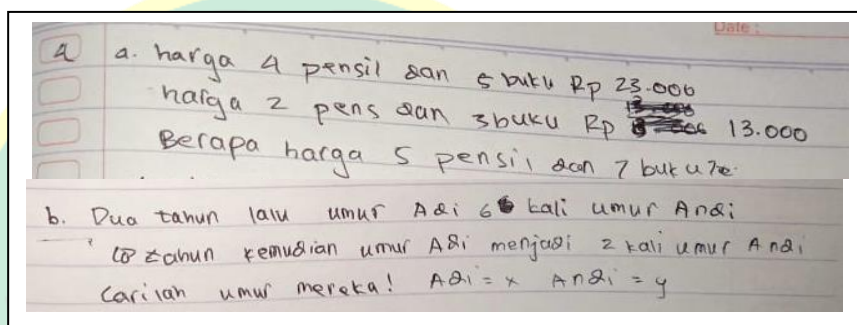 Date :
4 a. harga 4 pensil dan 5 buku Rp 23.000
harga 2 pens dan 3 buku Rp 13.000
Berapa harga 5 pensil dan 7 buku?
b. Dua tahun lalu umur Adi 6 kali umur Andi
18 tahun kemudian umur Adi menjadi 2 kali umur Andi
Carilah umur mereka! Adi = x Andi = y